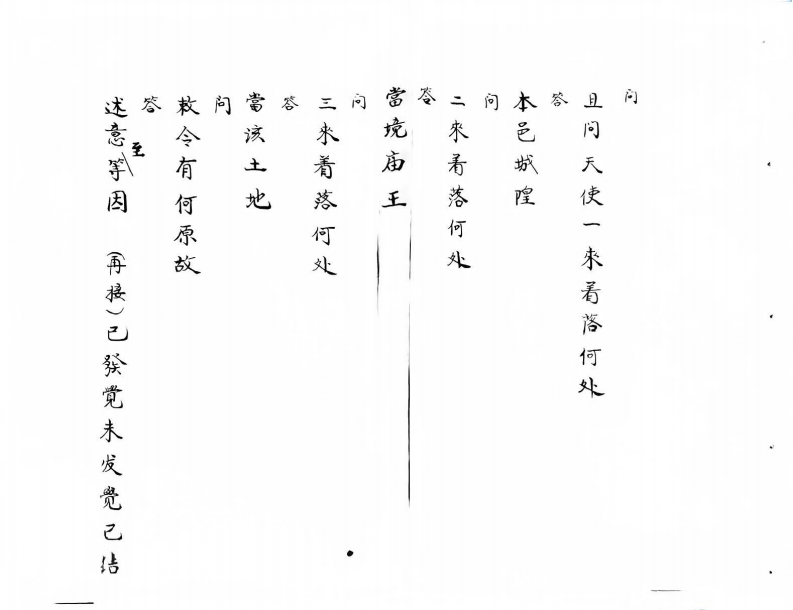 问
且问天使一來着落何处
答
本邑城隍
问
二來着落何处
答
當境庙王
问
三來着落何处
答
當該土地
问
敕令有何原故
答
述意至等因 (再接)已發覺未发覺已结